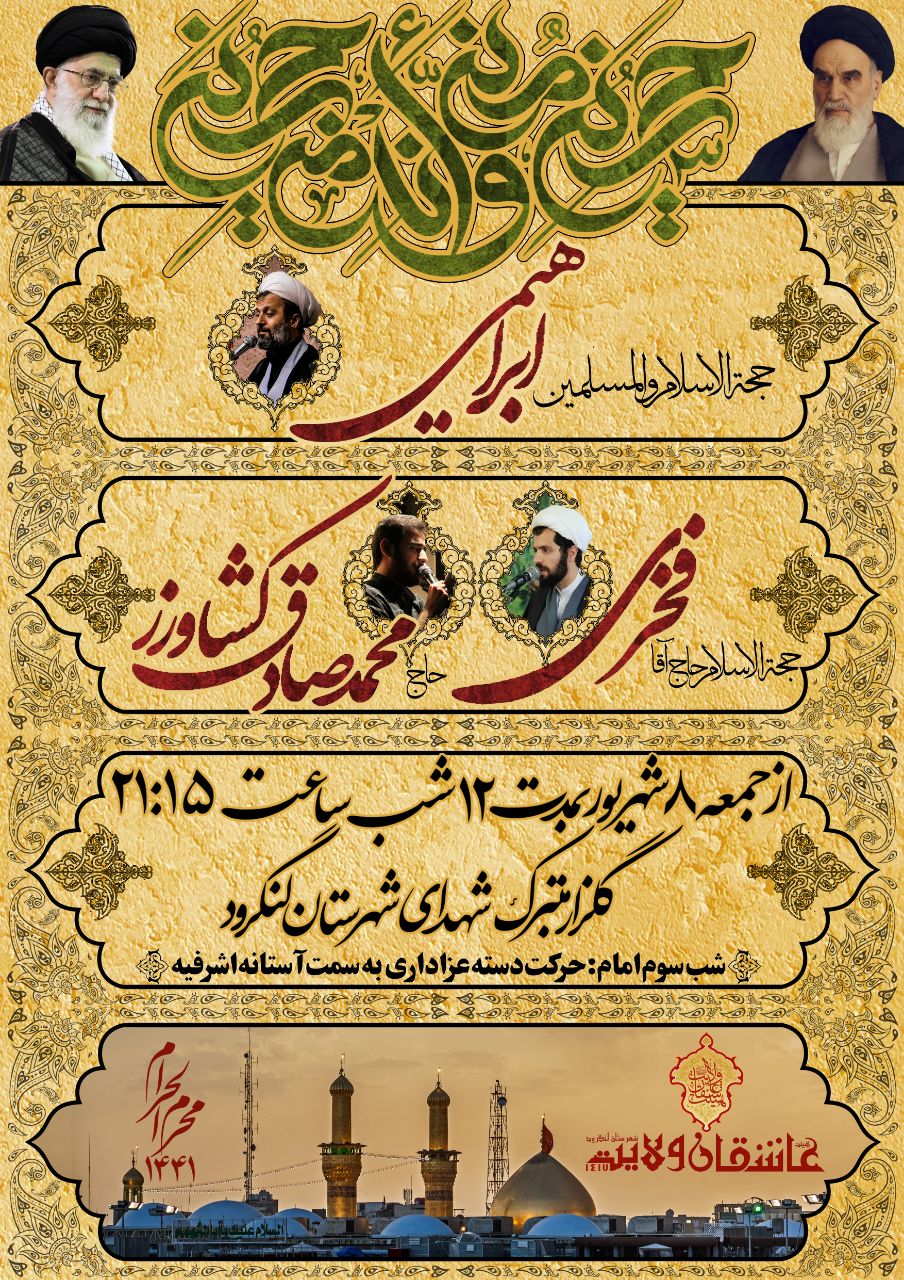 حسین منی و انا من حسین
حجة الاسلام والمسلمین
ابراهیمی
حجة الاسلام حاج آقا
فخری
حاج
محمدصادق کشاورز
از جمعه ۸ شهریور بمدت ۱۲ شب ساعت ۲۱:۱۵
گلزار متبرک شهدای شهرستان لنگرود
شب سوم امام: حرکت دسته عزاداری به سمت آستانه اشرفیه
محرم الحرام
۱۴۴۱
شهرستان لنگرود
هیئت عاشقان ولایت
۱۴۱۷